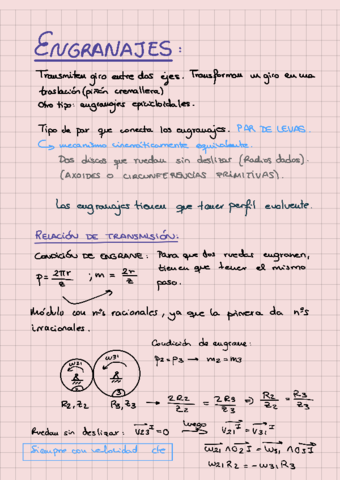 ENGRANAJES:
Transmiten giro entre dos ejes. Transforman un giro en una
traslación (piñón cremallera)
Otro tipo: engranajes epicicloidales.
Tipo de par que conecta los engranajes. PAR DE LEVAS
↳ mecanismo cinemáticamente equivalente.
Dos discos que ruedan sin deslizar (Radios dados).
(AXOIDES O CIRCUNFERENCIAS PRIMITIVAS).
Los engranajes tienen que tener perfil evolvente.
RELACIÓN DE TRANSMISIÓN:
CONDICIÓN DE ENGRANE: Para que dos ruedas engranen,
tienen que tener el mismo
paso.
p = 2πr/z ; m = 2r/z
Módulo con nºs racionales, ya que la primera da nºs
irracionales.
Condición de engrane:
p2 = p3 → m2 = m3
ω21 ω31
2 3
R2, z2 R3, z3 → 2R2/z2 = 2R3/z3 ⇒ R2/z2 = R3/z3
Ruedan sin deslizar: V23^I = 0 luego → V21^I = V31^I
Siempre con velocidad cte
ω21 ∧ O2I = ω31 ∧ O3I
ω21 R2 = -ω31 R3